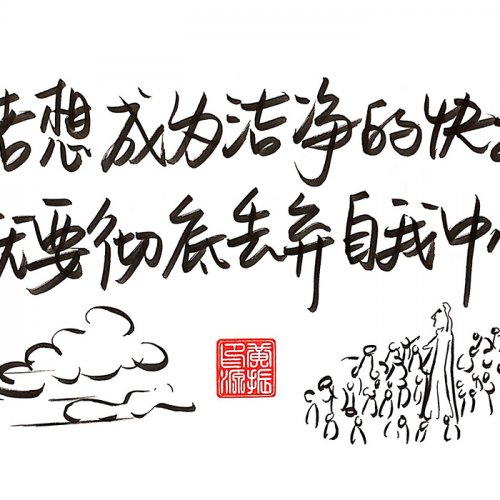 若想成为洁净的快
就要彻底丢弃自我中心
黄振源印